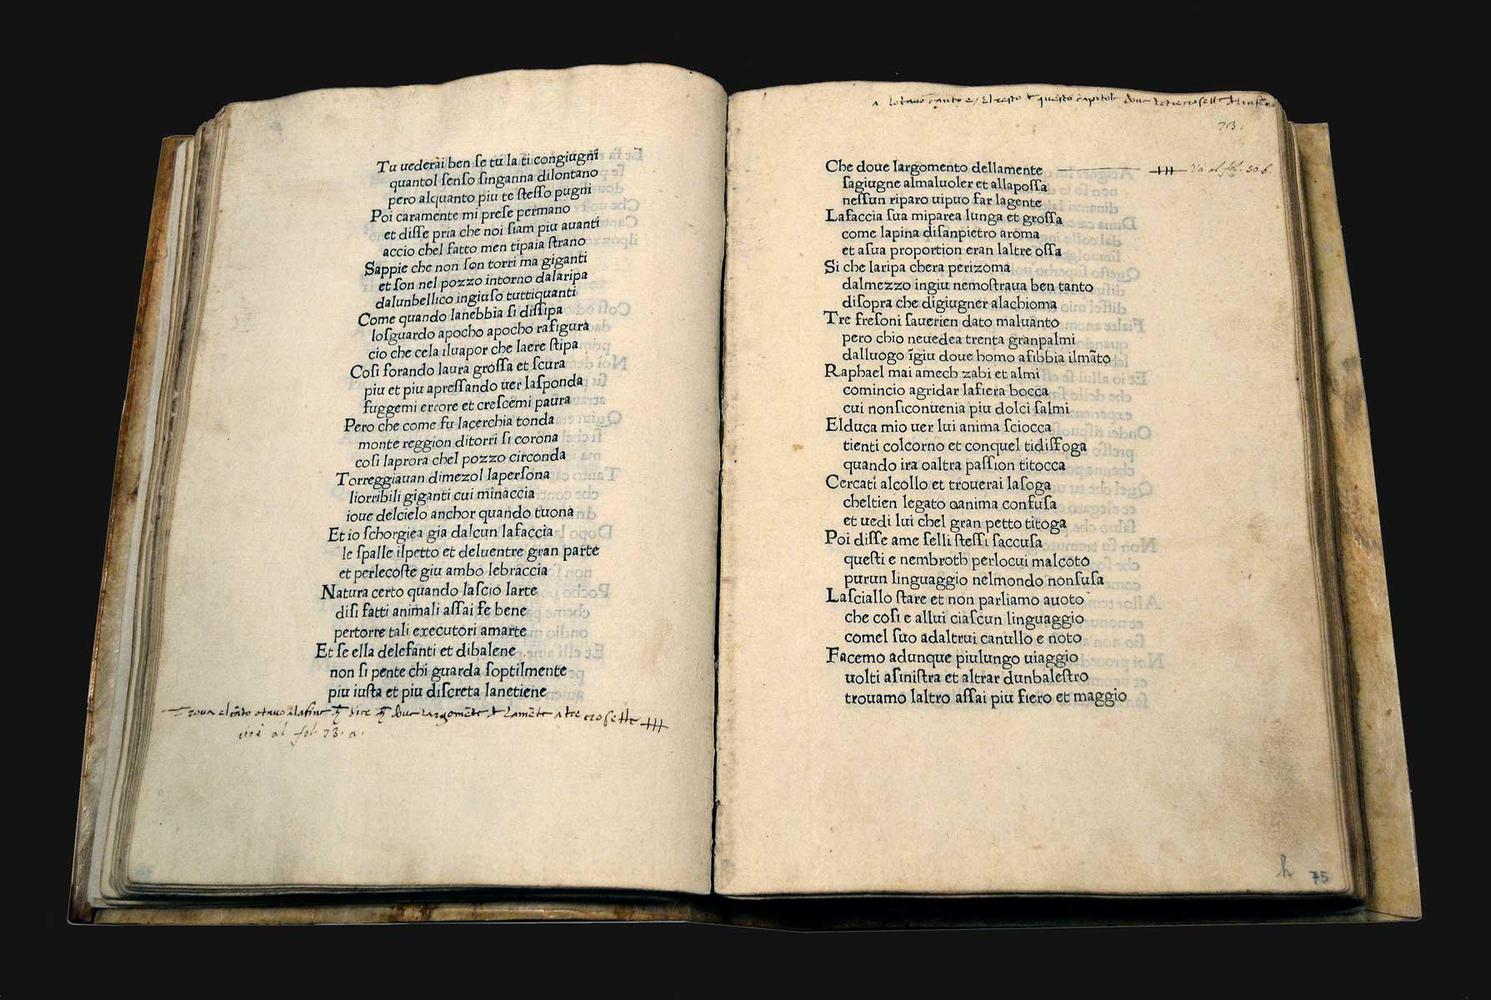 Tu uederai ben ſe tu la ti congiugni
quantol ſenſo ſinganna dilontano
pero alquanto piu te ſteſſo pugni
Poi caramente mi preſe permano
et diſſe pria che noi ſiam piu auanti
accio chel fatto men tipaia ſtrano
Sappie che non ſon torri ma giganti
et ſon nel pozzo intorno dalaripa
dalunbellico ingiuſo tuttiquanti
Come quando lanebbia ſi diſſipa
loſguardo apocho apocho rafigura
cio che cela iluapor che laere ſtipa
Coſi forando laura groſſa et ſcura
piu et piu apreſſando uer laſponda
fuggemi errore et creſcemi paura
Pero che come fu lacerchia tonda
monte reggion ditorri ſi corona
coſi laprora chel pozzo circonda
Torreggiauan dimezol laperſona
liorribili giganti cui minaccia
ioue delcielo anchor quando tuona
Et io ſchorgiea gia dalcun lafaccia
le ſpalle ilpetto et deluentre gran parte
et perlecoſte giu ambo lebraccia
Natura certo quando laſcio larte
diſi fatti animali aſſai fe bene
pertorre tali executori amarte
Et ſe ella delefanti et dibalene
non ſi pente chi guarda ſoptilmente
piu iuſta et piu diſcreta lanetiene
al fol. 73. a.
73.
Che doue largomento dellamente
ſagiugne almaluoler et allapoſſa
neſſun riparo uipuo far lagente
Lafaccia ſua miparea lunga et groſſa
come lapina diſanpietro aroma
et aſua proportion eran laltre oſſa
Si che laripa chera perizoma
dalmezzo ingiu nemoſtraua ben tanto
diſopra che digiugner alachioma
Tre freſoni ſauerien dato maluanto
pero chio neuedea trenta granpalmi
dalluogo ĩgiu doue homo afibbia ilmãto
Raphael mai amech zabi et almi
comincio agridar lafiera bocca
cui nonſiconuenia piu dolci ſalmi
Elduca mio uer lui anima ſciocca
tienti colcorno et conquel tidiſſoga
quando ira oaltra paſſion titocca
Cercati alcollo et trouerai laſoga
cheltien legato oanima confuſa
et uedi lui chel gran petto titoga
Poi diſſe ame ſelli ſteſſi ſaccuſa
queſti e nembroth perlocui malcoto
purun linguaggio nelmondo nonſuſa
Laſciallo ſtare et non parliamo auoto
che coſi e allui ciaſcun linguaggio
comel ſuo adaltrui canullo e noto
Facemo adunque piulungo uiaggio
uolti aſiniſtra et altrar dunbaleſtro
trouamo laltro aſſai piu fiero et maggio
h 75